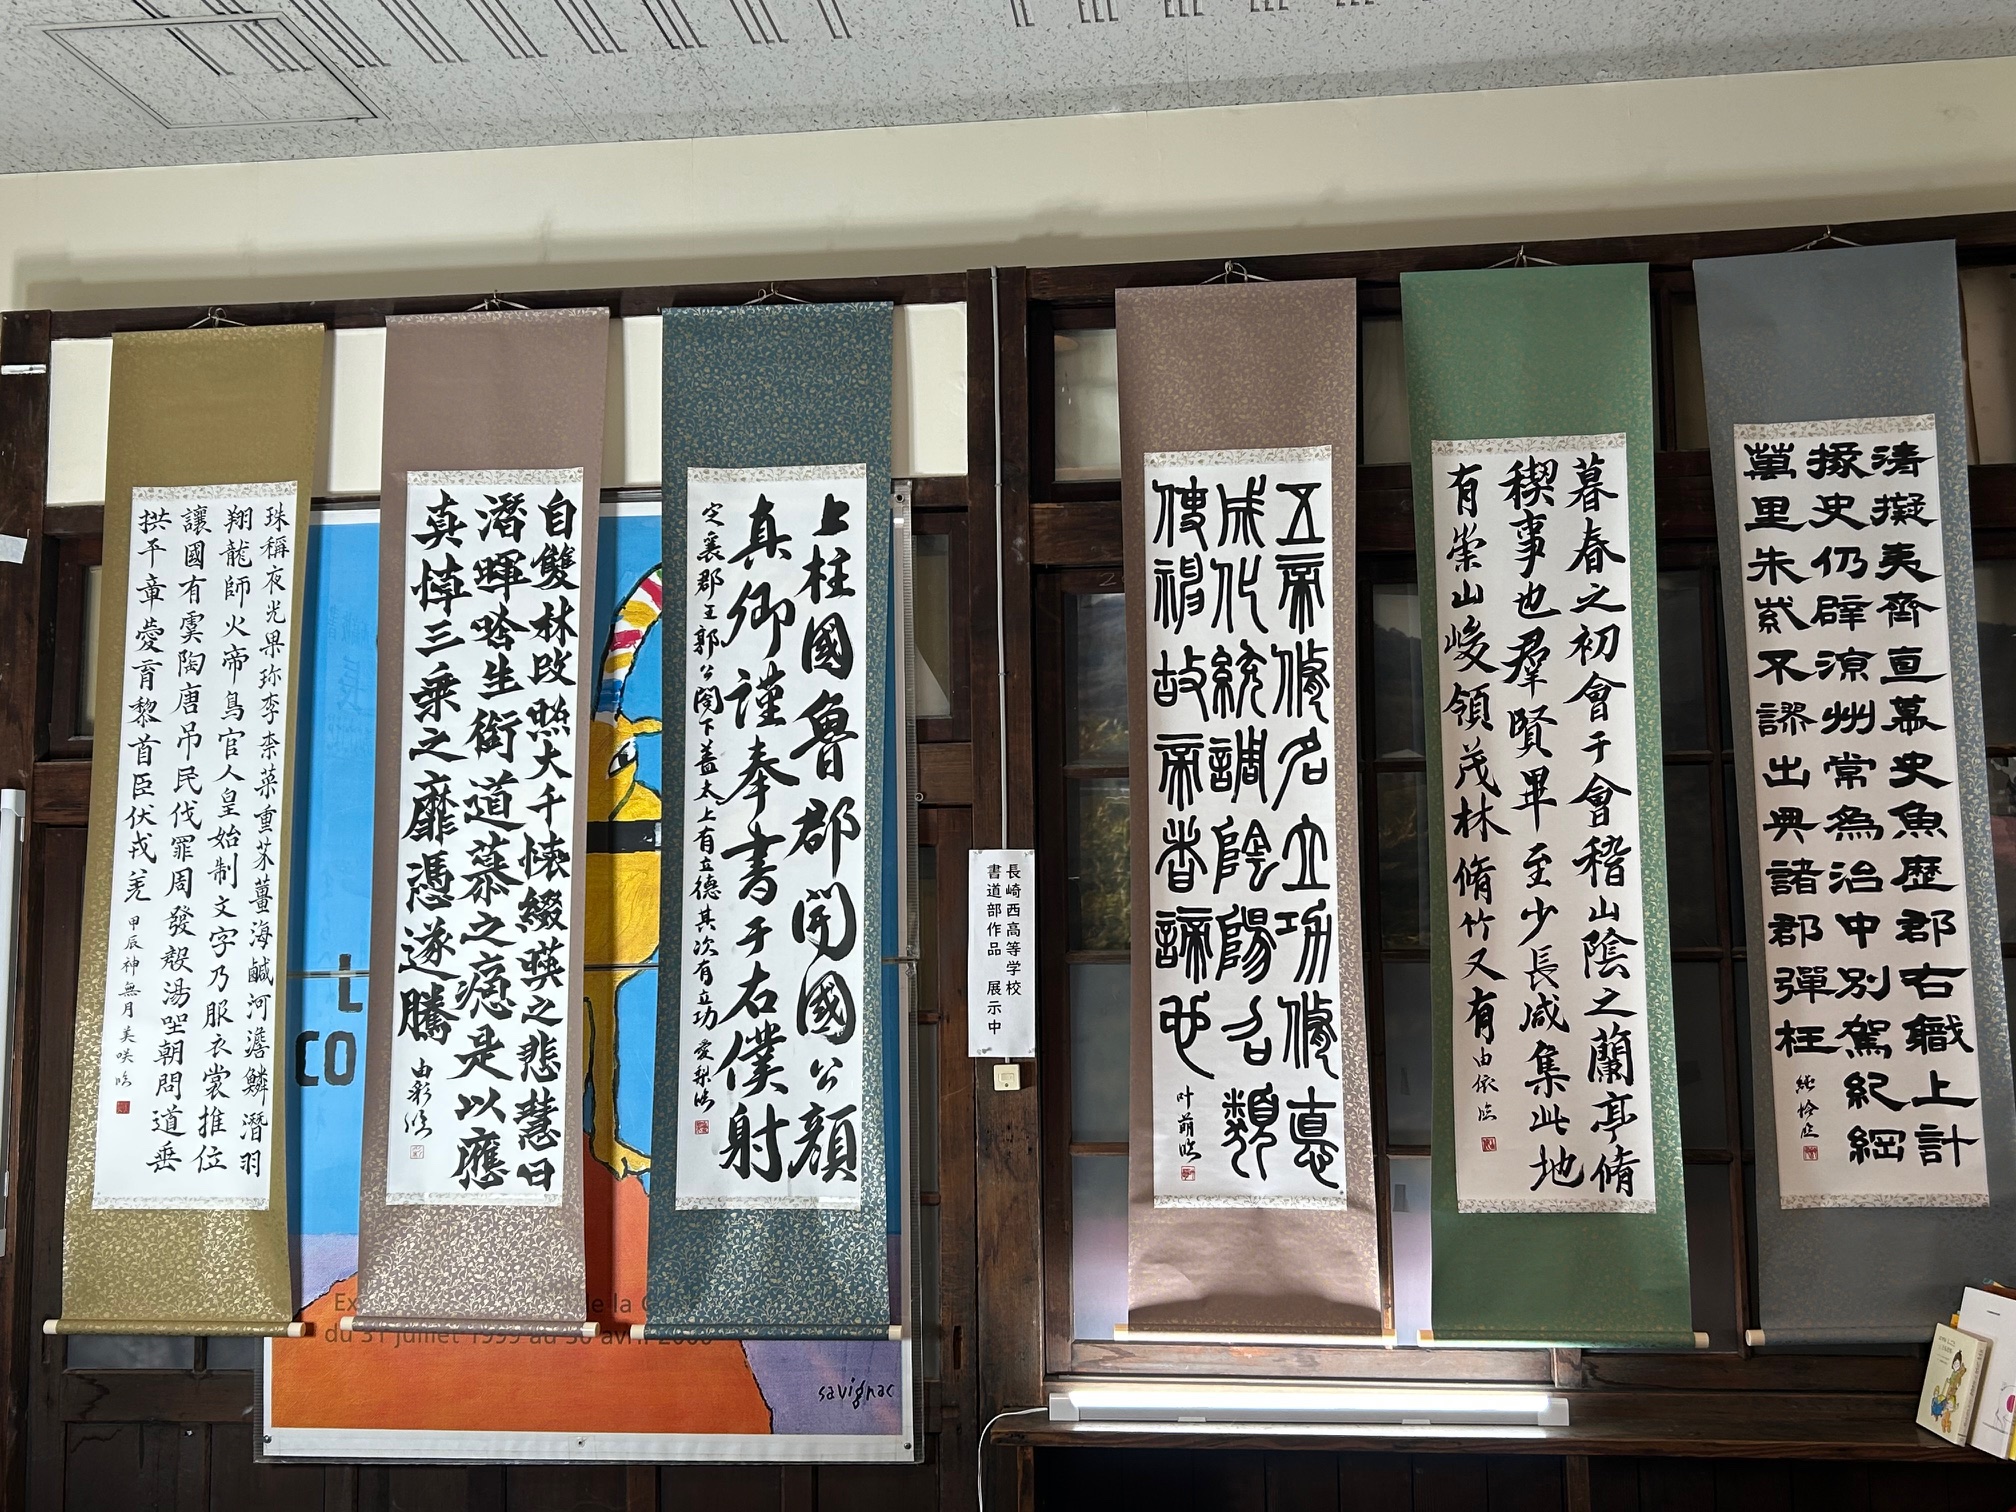 清擬夷齊直慕史魚歷郡右職上計
掾史仍辟涼州常為治中別駕紀綱
萬里朱紫不謬出典諸郡彈枉
暮春之初會于會稽山陰之蘭亭脩
稧事也羣賢畢至少長咸集此地
有崇山峻領茂林脩竹又有 由依臨
五帝脩名立功脩悳
成化統調陰陽召類
使神故帝者諦也 叶萌臨
長崎西高等学校
書道部作品 展示中
上柱國魯郡開國公顏
真卿謹奉書于右僕射
定襄郡王郭公閤下蓋太上有立德其次有立功 愛梨臨
自雙林改照大千懷綴暎之悲慧日
潛暉唅生銜道慕之戀是以應
真悼三乗之靡憑遂騰 由彩臨
珠稱夜光果珎李柰菜重芥薑海鹹河淡鱗潛羽
翔龍師火帝鳥官人皇始制文字乃服衣裳推位
讓國有虞陶唐吊民伐罪周發殷湯坐朝問道垂
拱平章愛育黎首臣伏戎羌 甲辰神無月 美咲臨
L
CO
Ex de la
du 31 juillet 1999 au 30 avril 2000
savignac